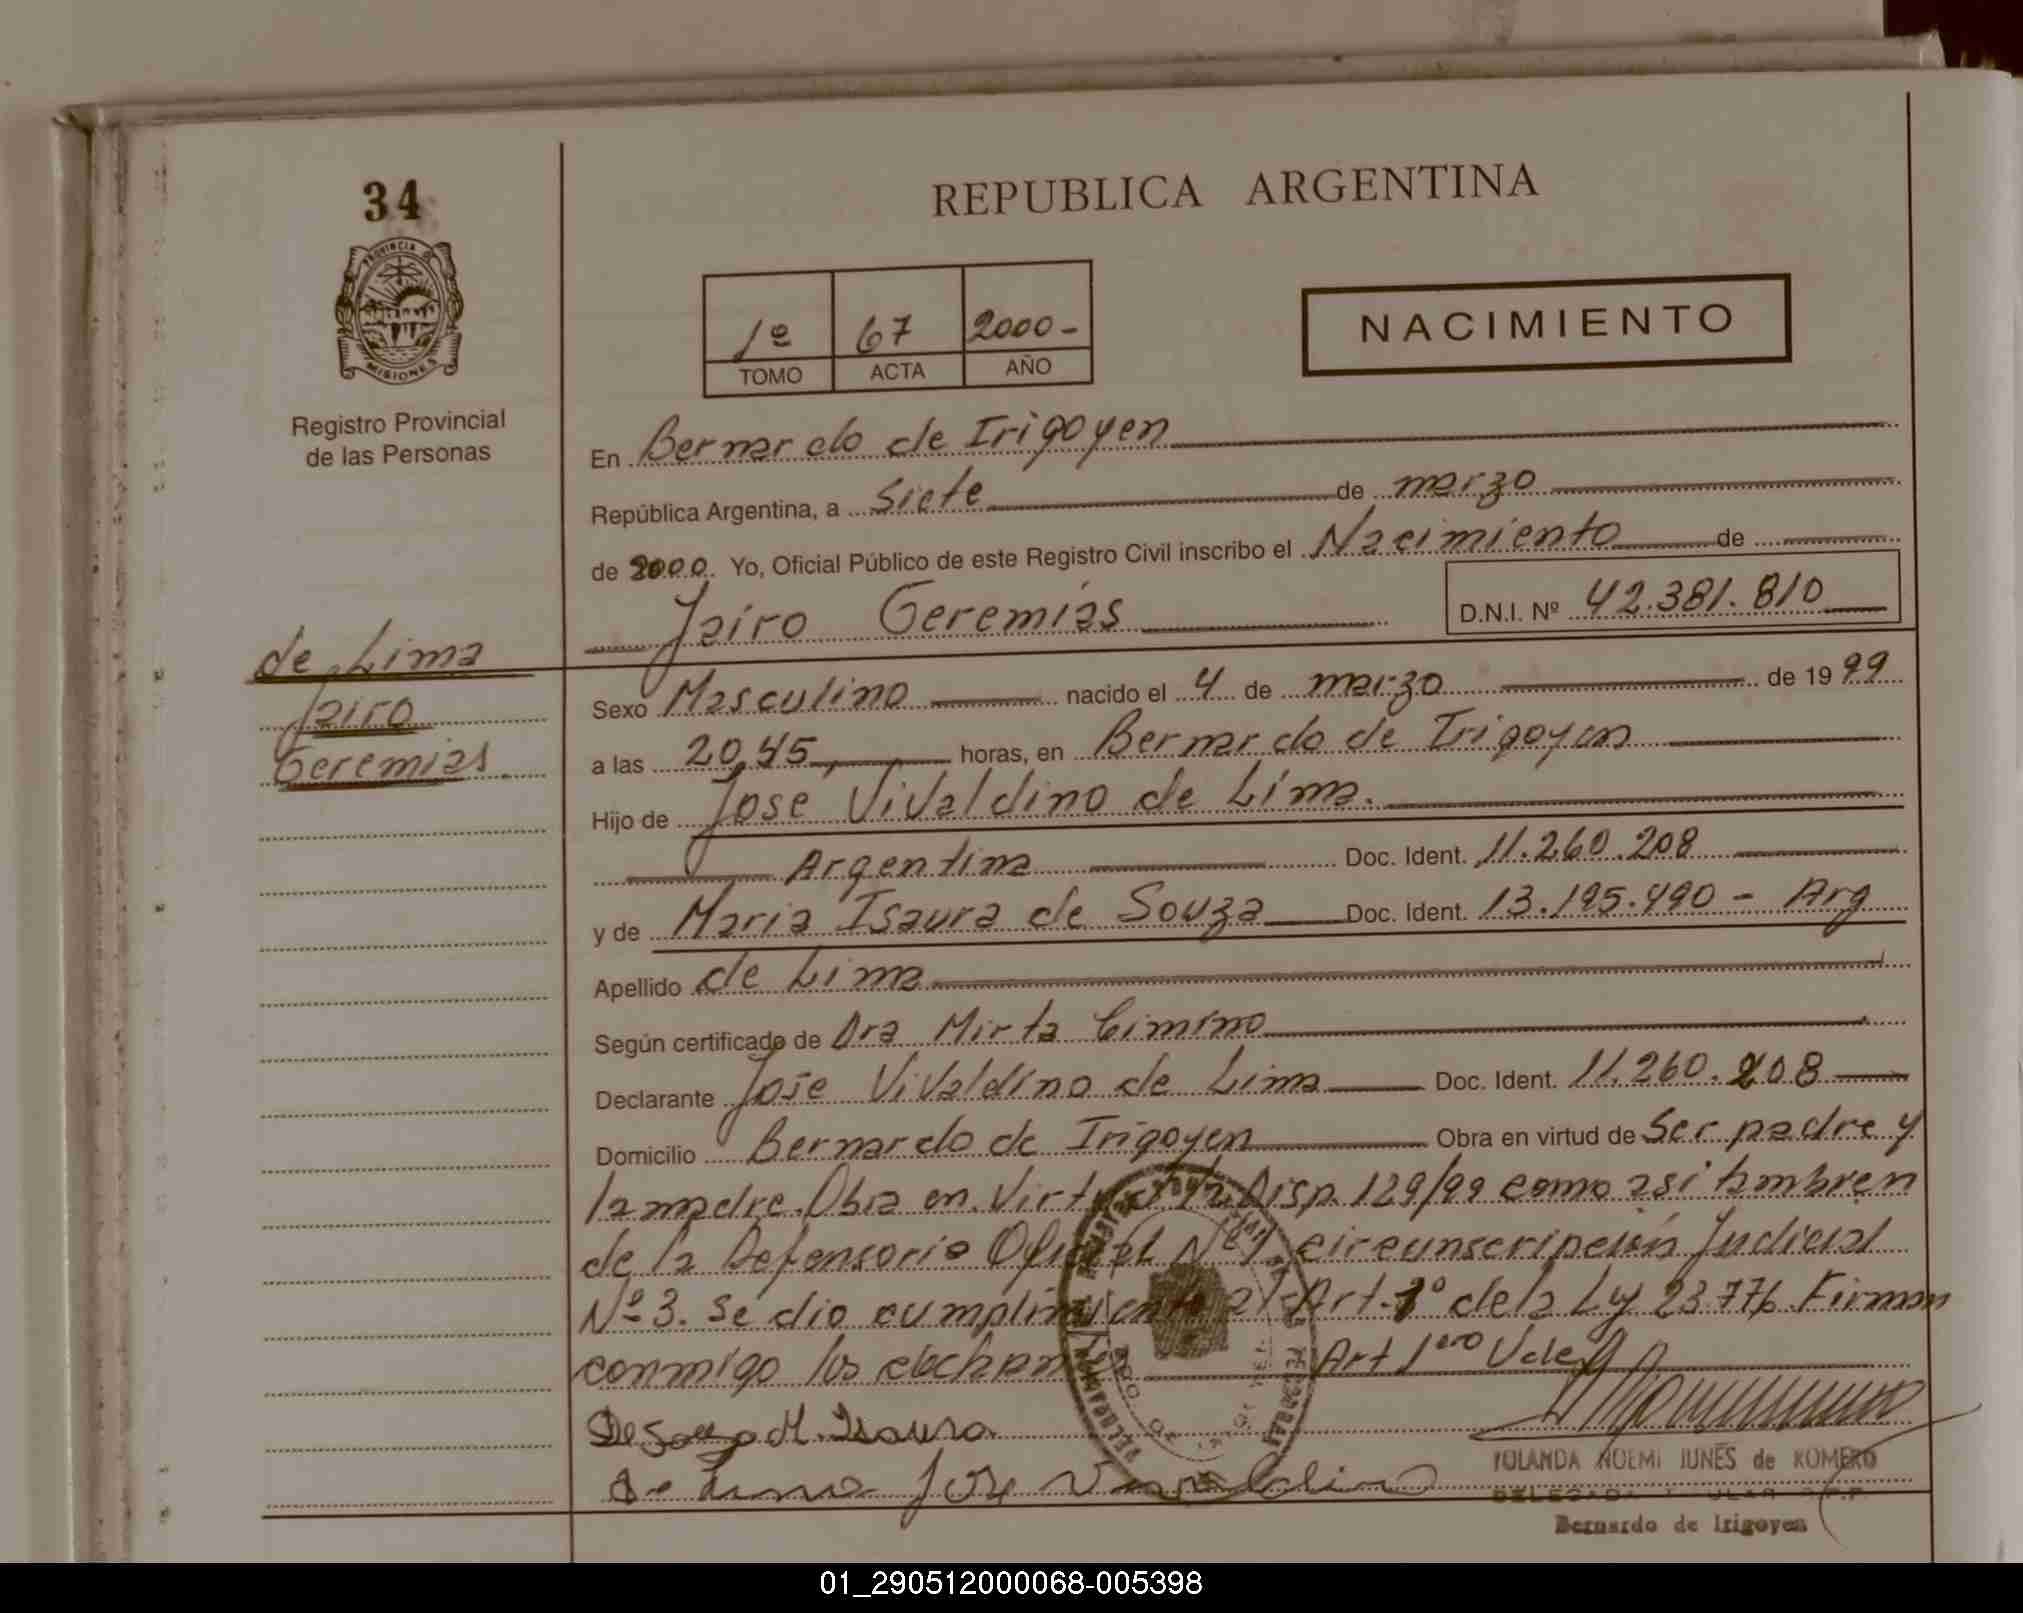 34
REPUBLICA ARGENTINA
PROVINCIA DE
MISIONES
1º 67 2000-
TOMO ACTA AÑO
NACIMIENTO
Registro Provincial
de las Personas
En Bernardo de Irigoyen
República Argentina, a Siete de marzo
de 2000. Yo, Oficial Público de este Registro Civil inscribo el Nacimiento de
Jairo Geremías
D.N.I. Nº 42.381.810
de Lima
Jairo
Geremias
Sexo Masculino nacido el 4 de marzo de 1999
a las 20,45, horas, en Bernardo de Irigoyen
Hijo de Jose Vivaldino de Lima.
Argentina Doc. Ident. 11.260.208
y de Maria Isaura de Souza Doc. Ident. 13.195.490 - Arg
Apellido de Lima
Según certificado de Dra Mirta Cimino
Declarante Jose Vivaldino de Lima Doc. Ident. 11.260.208
Domicilio Bernardo de Irigoyen Obra en virtud de Ser padre y
la madre. Obra en Virtud Disp. 129/99 como asi tambien
de la Defensoria Oficial Nº 1 circunscripción Judicial
Nº 3. Se dio cumplimiento al Art. 1º de la Ley 23.776. Firman
conmigo los Art 1ero Vale
De Souza M. Isaura
de Lima Jose Vivaldino
YOLANDA NOEMI JUNES de ROMERO
DELEGADA TITULAR R.P.P.
Bernardo de Irigoyen
01_290512000068-005398